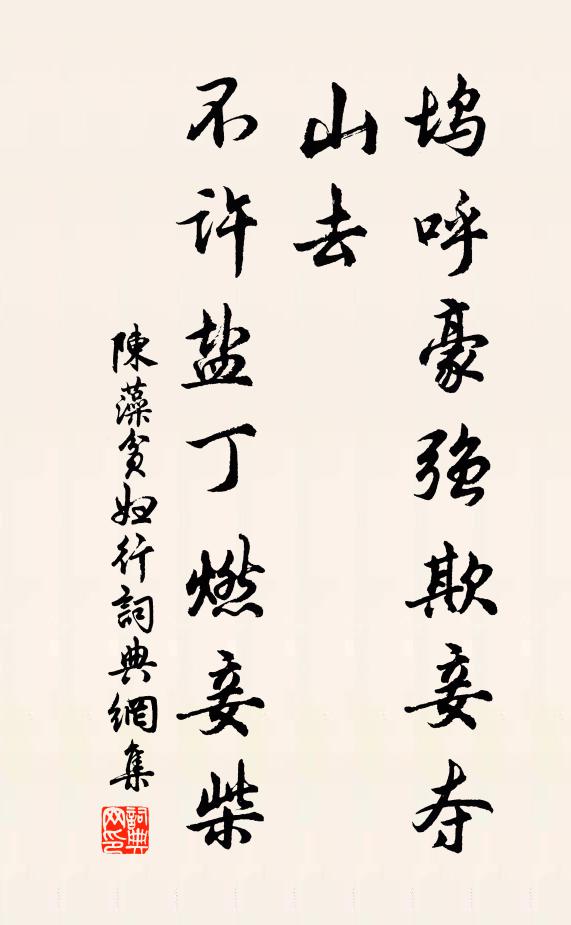 坞呼豪强欺妾夺
山去
不许盐丁燃妾柴
陳藻貧婦行詞典網集
詞典网印